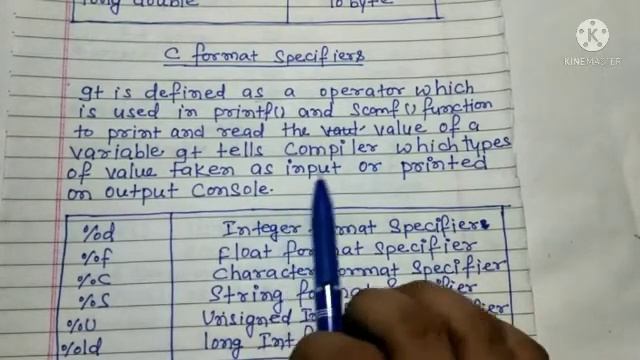 long double 10 byte
KINEMASTER
C format Specifiers
gt is defined as a operator which
is used in printf() and Scanf() function
to print and read the value of a
variable gt tells Compiler which types
of value taken as input or printed
on output Console.
%d Integer format Specifiers
%f Float format Specifier
%C Character format Specifier
%S String
%U Unsigned
%ld long Int